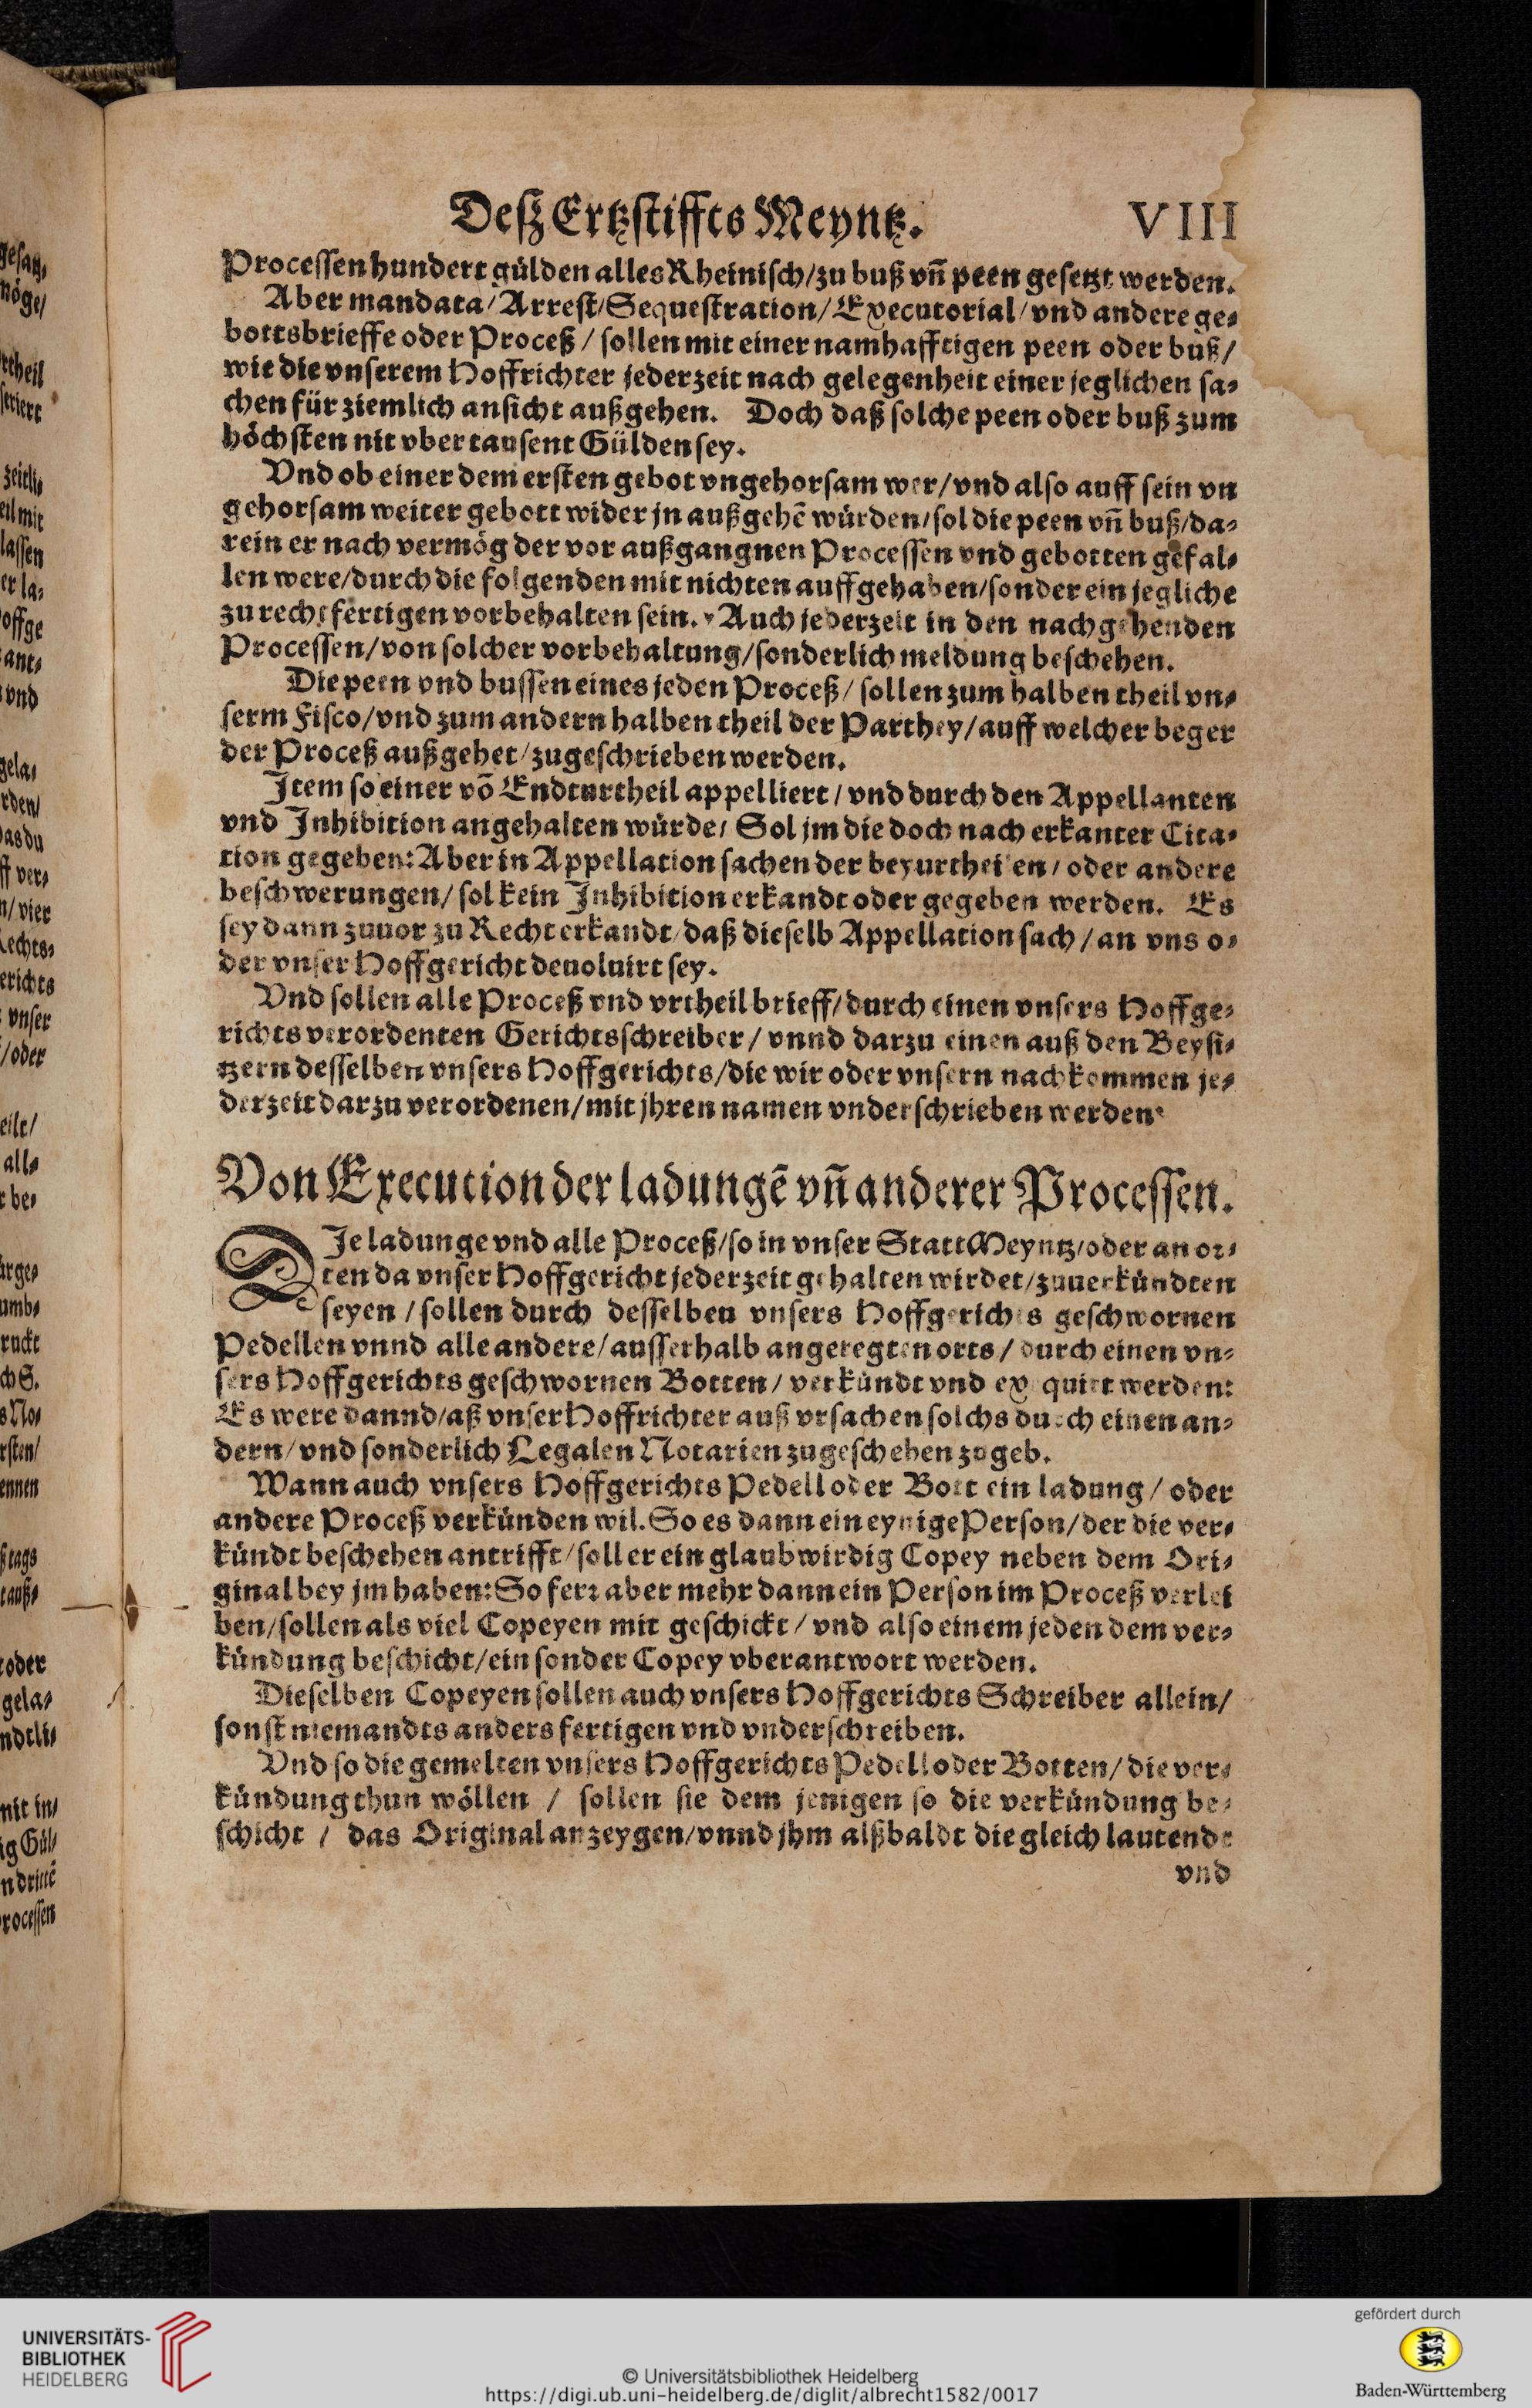 Deſz Ertzſtiffts Meyntz. VIII
Proceſſen hundert gülden alles Rheiniſch/zu buß vñ peen geſetzt werden.
Aber mandata/Arreſt/Sequeſtration/Executorial/vnd andere ge⸗
bottsbrieffe oder Proceß/ ſollen mit einer namhafftigen peen oder buß/
wie die vnſerem Hoffrichter jederzeit nach gelegenheit einer jeglichen ſa⸗
chen für ziemlich anſicht außgehen. Doch daß ſolche peen oder buß zum
höchſten nit vber tauſent Gülden ſey.
Vnd ob einer dem erſten gebot vngehorſam wer/vnd alſo auff ſein vn
gehorſam weiter gebott wider jn außgehẽ würden/ſol die peen vñ buß/da⸗
rein er nach vermög der vor außgangnen Proceſſen vnd gebotten gefal⸗
len were/durch die folgenden mit nichten auffgehaben/ſonder ein jegliche
zu rechtfertigen vorbehalten ſein. Auch jederzeit in den nachgehenden
Proceſſen/von ſolcher vorbehaltung/ſonderlich meldung beſchehen.
Die peen vnd buſſen eines jeden Proceß/ ſollen zum halben theil vn⸗
ſerm Fiſco/vnd zum andern halben theil der Parthey/auff welcher beger
der Proceß außgehet/zugeſchrieben werden.
Item ſo einer võ Endturtheil appelliert/ vnd durch den Appellanten
vnd Inhibition angehalten würde/ Sol jm die doch nach erkanter Cita⸗
tion gegeben: Aber in Appellation ſachen der beyurtheilen/ oder andere
beſchwerungen/ ſol kein Inhibition erkandt oder gegeben werden. Es
ſey dann zuuor zu Recht erkandt/daß dieſelb Appellation ſach/an vns o⸗
der vnſer Hoffgericht deuoluirt ſey.
Vnd ſollen alle Proceß vnd vrtheil brieff/durch einen vnſers Hoffge⸗
richts verordenten Gerichtsſchreiber/ vnnd darzu einen auß den Beyſi⸗
tzern deſſelben vnſers Hoffgerichts/die wir oder vnſern nachkommen je⸗
derzeit darzu verordenen/mit jhren namen vnderſchrieben werden.
Von Execution der ladungẽ vñ anderer Proceſſen.
DIe ladunge vnd alle Proceß/ſo in vnſer Statt Meyntz/oder an or⸗
ten da vnſer Hoffgericht jederzeit gehalten wirdet/zuuerkündten
ſeyen/ſollen durch deſſelben vnſers Hoffgerichts geſchwornen
Pedellen vnnd alle andere/auſſerhalb angeregten orts/durch einen vn⸗
ſers Hoffgerichts geſchwornen Botten/ verkündt vnd exequirt werden:
Es were dannd/aß vnſer Hoffrichter auß vrſachen ſolchs durch einen an⸗
dern/vnd ſonderlich Legalen Notarien zugeſchehen zugeb.
Wann auch vnſers Hoffgerichts Pedell oder Bott ein ladung/ oder
andere Proceß verkünden wil. So es dann ein eynige Perſon/der die ver⸗
kündt beſchehen antrifft/ſoll er ein glaubwirdig Copey neben dem Ori⸗
ginal bey jm haben: So ferr aber mehr dann ein Perſon im Proceß verlei
ben/ſollen als viel Copeyen mit geſchickt/ vnd alſo einem jeden dem ver⸗
kündung beſchicht/ein ſonder Copey vberantwort werden.
Dieſelben Copeyen ſollen auch vnſers Hoffgerichts Schreiber allein/
ſonſt niemandts anders fertigen vnd vnderſchreiben.
Vnd ſo die gemelten vnſers Hoffgerichts Pedell oder Botten/ die ver⸗
kündung thun wöllen / ſollen ſie dem jenigen ſo die verkündung be⸗
ſchicht / das Original anzeygen/vnnd jhm alßbaldt die gleich lautende
vnd
UNIVERSITÄTS-
BIBLIOTHEK
HEIDELBERG
© Universitätsbibliothek Heidelberg
https://digi.ub.uni-heidelberg.de/diglit/albrecht1582/0017
gefördert durch
Baden-Württemberg